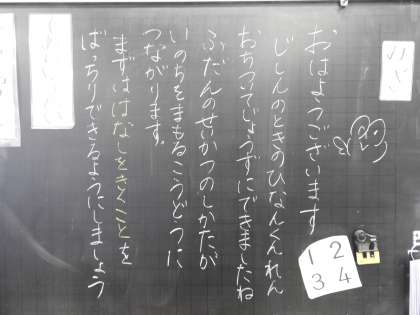 おはようございます
じしんのときのひなんくんれん
おちついてじょうずにできましたね
ふだんのせいかつのしかたが
いのちをまもるこうどうに
つながります。
まずははなしをきくことを
ばっちりできるようにしましょう
1 2
3 4